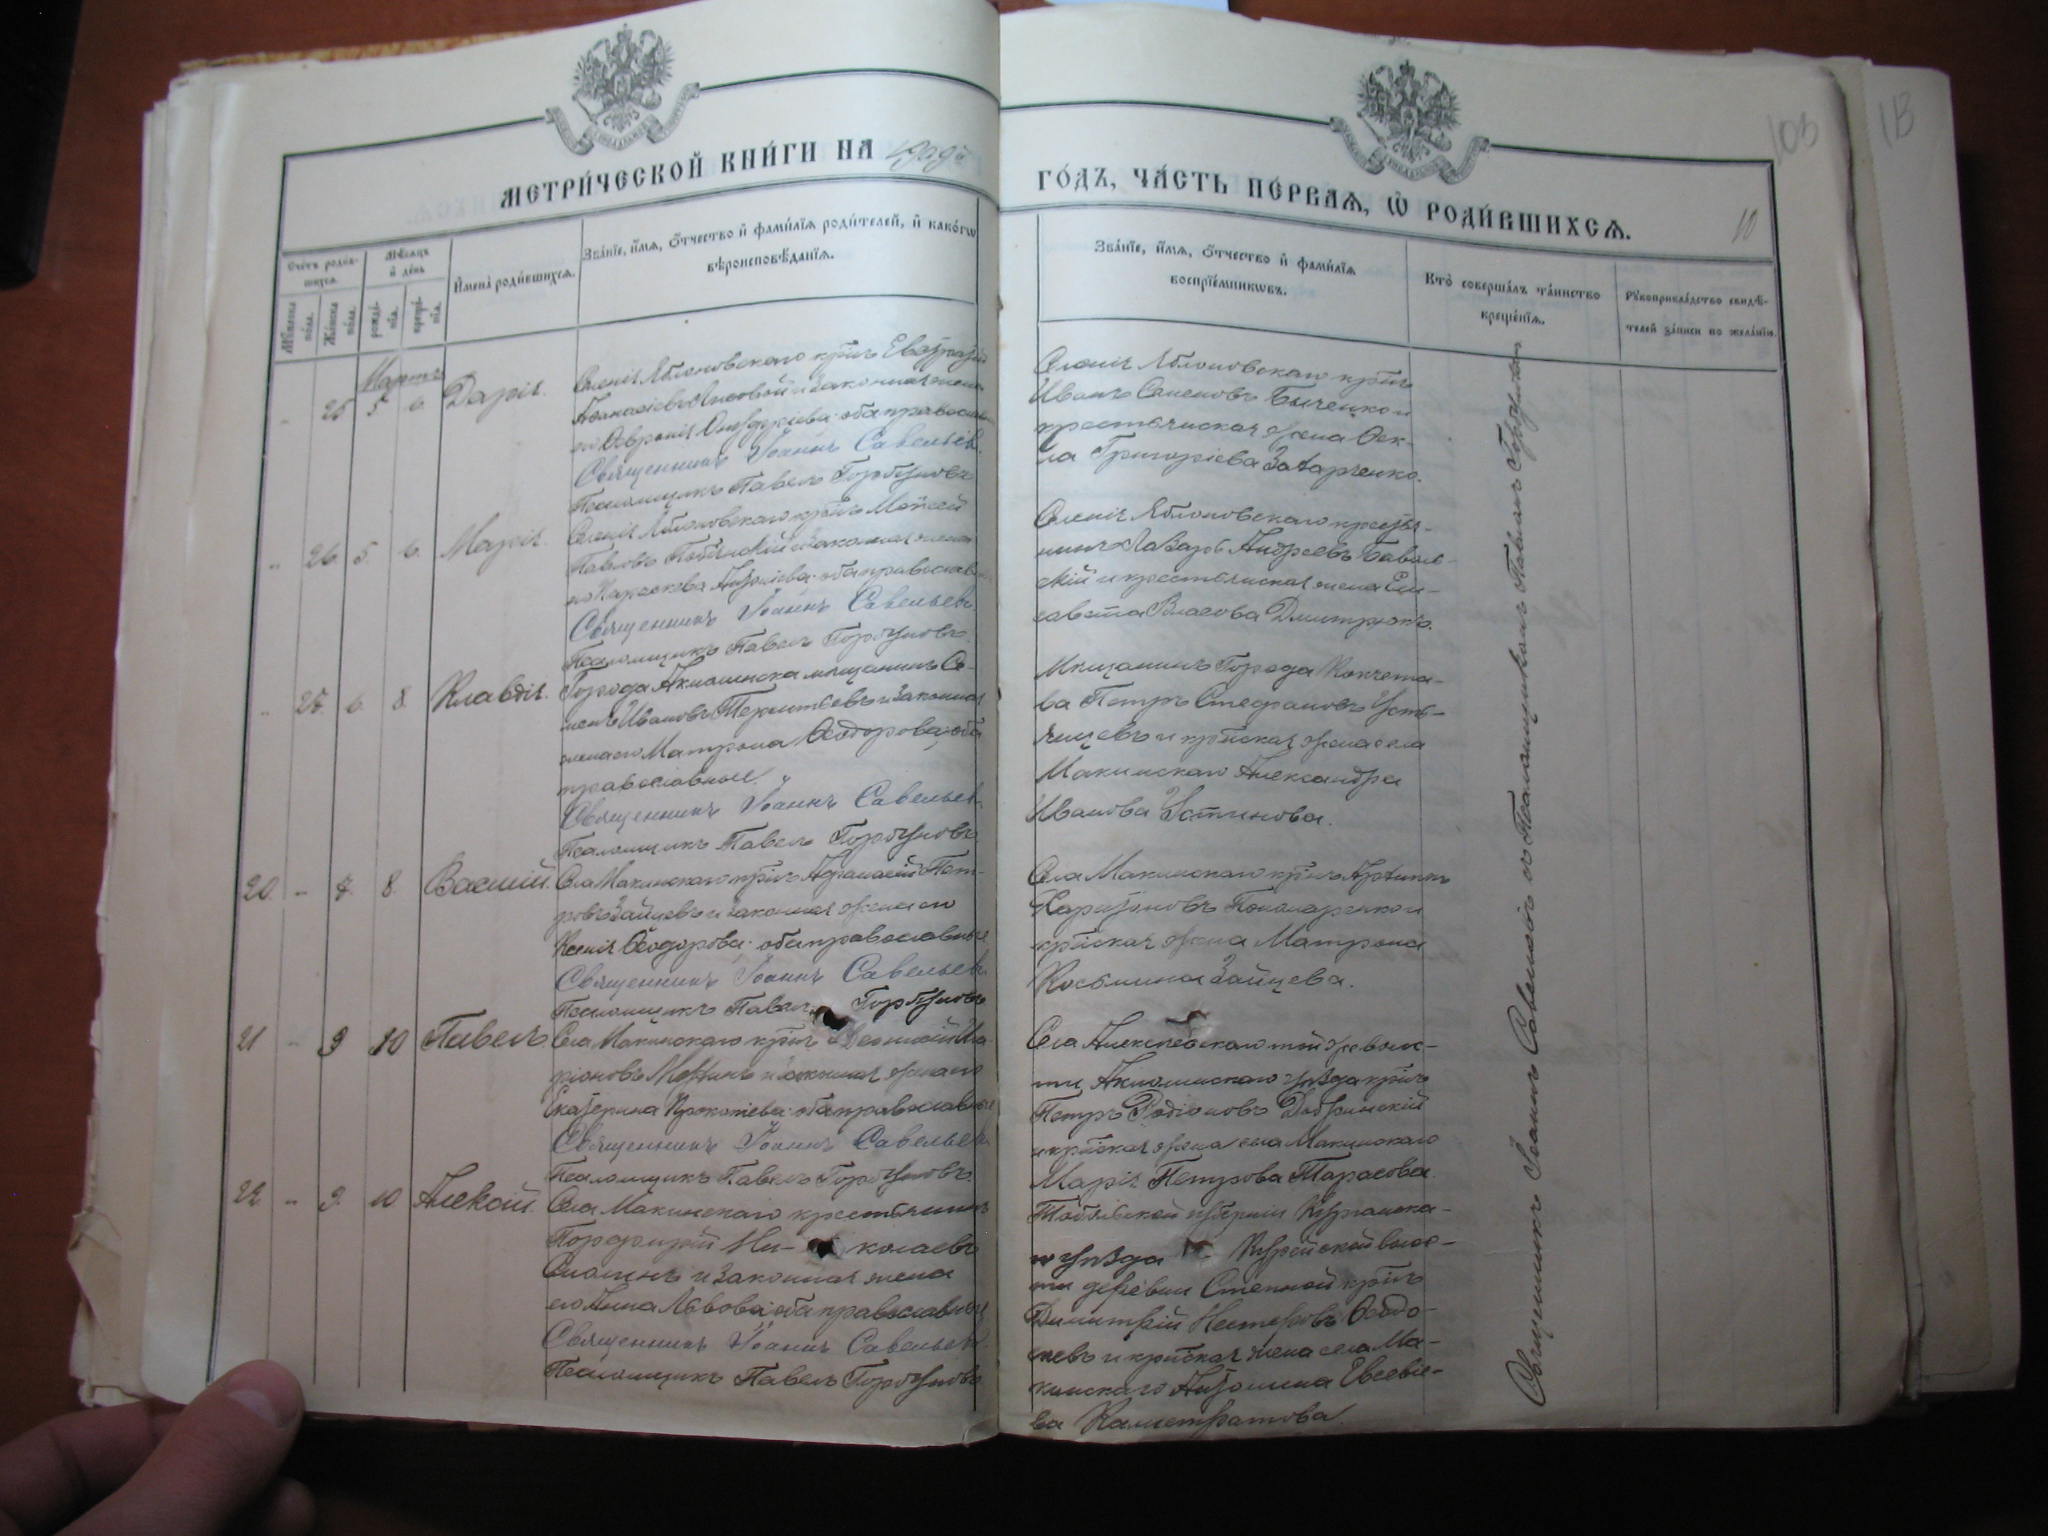 МЕТРИ́ЧЕСКОЙ КНИ́ГИ НА 1909й
ГО́ДЪ, ЧА́СТЬ ПЕ́РВАѦ, Ѽ РОДИ́ВШИХСѦ.
103
13
10
Сче́тъ роди́вшихсѧ.
Мꙋ́жеска пола.
Же́нска по́ла.
Мѣ́сѧцъ и҆ де́нь
рожде́нїѧ.
креще́нїѧ.
И҆мена̀ роди́вшихсѧ.
Зва́нїе, и҆́мѧ, ѻ҆́тчество и҆ фами́лїѧ роди́телей, и҆ како́гѡ
вѣроисповѣ́данїѧ.
Зва́нїе, и҆́мѧ, ѻ҆́тчество и҆ фами́лїѧ
воспрїе́мникѡвъ.
Кто̀ соверша́лъ та́инство
креще́нїѧ.
Рꙋкоприкла́дство свидѣ́-
телей за́писи по жела́нїю.
Мартъ
25 5 6. Дарія.
Селенія Яблоновскаго кр-нъ
Аѳанасіевъ и законная жена
его Оевронія обаправославн
Священникъ Іоаннъ Савельевъ.
Псаломщикъ Павелъ Горбуновъ
Селенія Яблоновскаго кр-нъ
Иванъ Семеновъ Быченко и
крестьянская жена Оек-
ла Григоріева Захарченко.
26. 5. 6. Марія.
Селенія Яблоновскаго кр-нъ Моисей
Павловъ и законная жена
его Параскова обаправослав
Священникъ Іоаннъ Савельевъ
Псаломщикъ Павелъ Горбуновъ.
Селенія Яблоновскаго крестья-
нинъ Лазарь Андреевъ
скій и крестьянская жена Ели-
савета Власова Дмитрюкъ.
25. 6. 8. Клавдія.
Города Акмолинска мѣщанинъ Се-
менъ Ивановъ и законная
жена его Матрона Ѳеодорова; оба
православные.
Священникъ Іоаннъ Савельевъ.
Псаломщикъ Павелъ Горбуновъ
Мѣщанинъ Города Кокчета-
ва Петръ Стефановъ Усть-
янцевъ и кр-нская жена села
Макинскаго Александра
Иванова Устинова.
20. 7. 8. Василій.
Села Макинскаго кр-нъ Аѳанасій Пет-
ровъ Зайцевъ и законная жена его
Ксенія Ѳеодорова; оба православные
Священникъ Іоаннъ Савельевъ.
Псаломщикъ Павелъ Горбуновъ
Села Макинскаго кр-нъ
Харитоновъ Пономаренко и
кр-нская жена Матрона
Косьмина Зайцева.
21 9 10 Павелъ.
Села Макинскаго кр-нъ Ила-
ріоновъ и законная жена его
Екатерина Прокопіева; оба православные
Священникъ Іоаннъ Савельевъ
Псаломщикъ Павелъ Горбуновъ.
Села Алексѣевскаго той же волос-
ти Акмолинскаго уѣзда кр-нъ
Петръ Родіоновъ Добринскій
и кр-нская жена села Макинскаго
Марія Петрова Тарасова.
22. 9. 10 Алексѣй.
Села Макинскаго крестьянинъ
Порфирій Ни- колаевъ
и законная жена
его Анна Львова; оба православные
Священникъ Іоаннъ Савельевъ.
Псаломщикъ Павелъ Горбуновъ
Тобольской губерніи Курганска-
го уѣзда волос-
ти деревни Степной кр-нъ
Димитрій Нестеровъ
и кр-нская жена села Ма-
кинскаго Евсевіе-
ва Калистратова.
Священникъ Іоаннъ Савельевъ съ Псаломщикомъ Павломъ Горбуновымъ